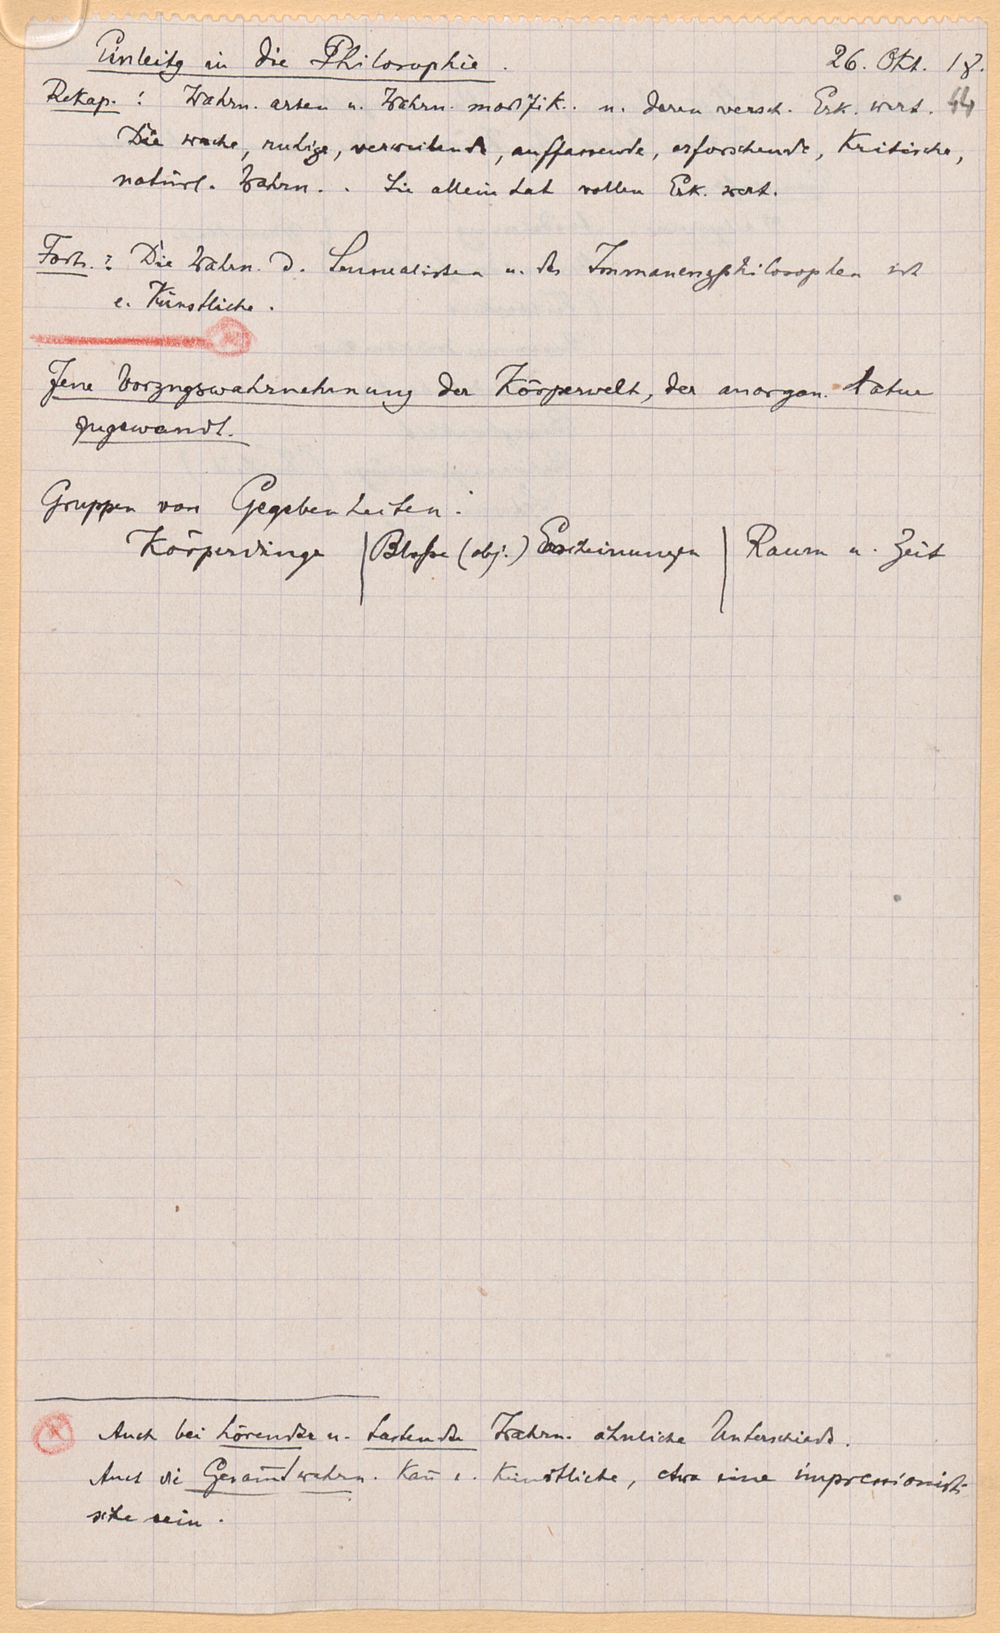 Einleitg in die Philosophie. 26. Okt. 18.
Rekap.: Wahrn. arten u. Wahrn. modifik.. u. deren versch. Erk. wert. 44
Die wache, ruhige, verweilende, auffassende, erforschende, kritische,
natürl. Wahrn. . Sie allein hat vollen Erk. wert.
Forts.: Die Wahrn. d. Sensualisten u. der Immanenzphilosophen ist
e. künstliche.
Jene Vorzugswahrnehmung der Körperwelt, der anorgan. Natur
zugewandt.
Gruppen von Gegebenheiten:
Körperdinge | Blosse (obj.) Erscheinungen | Raum u. Zeit
Auch bei hörender u. tastender Wahrn. ähnliche Unterschiede.
Auch die Gesamtwahrn. kan̄ e. künstliche, etwa eine impressionisti-
sche sein.